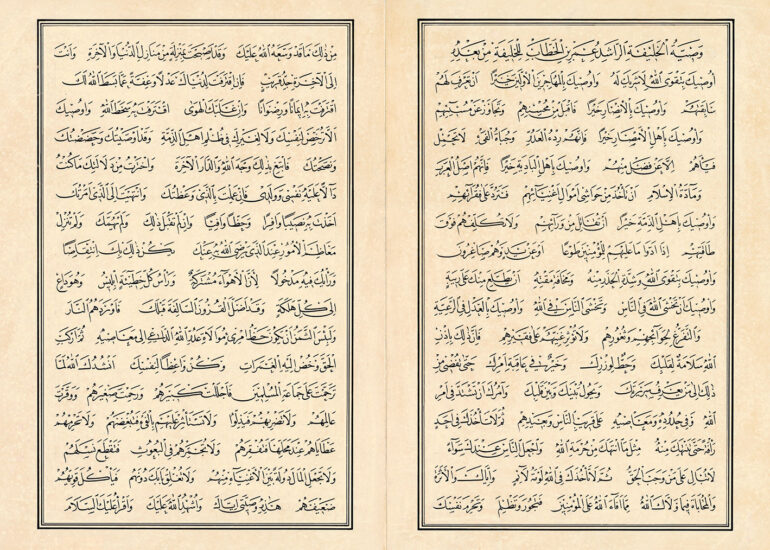 وصية الخليفة الراشد عمر بن الخطاب للخليفة من بعده
أوصيك بتقوى الله لا شريك له وأوصيك بالمهاجرين الأولين خيرا أن تعرف لهم
سابقتهم وأوصيك بالأنصار خيرا فاقبل من محسنهم وتجاوز عن مسيئهم
وأوصيك بأهل الأمصار خيرا فإنهم ردء العدو وجباة الفيء لا تحمل
فيأهم إلا عن فضل منهم وأوصيك بأهل البادية خيرا فإنهم أصل العرب
ومادة الإسلام أن تأخذ من حواشي أموال أغنيائهم فترد على فقرائهم
وأوصيك بأهل الذمة خيرا أن تقاتل من ورائهم ولا تكلفهم فوق
طاقتهم إذا أدوا ما عليهم للمؤمنين طوعا أو عن يد وهم صاغرون
وأوصيك بتقوى الله وشدة الحذر منه ومخافة مقته أن يطلع منك على ريبة
وأوصيك أن تخشى الله في الناس وتخشى الناس في الله وأوصيك بالعدل في الرعية
والتفرغ لحوائجهم وثغورهم ولا تؤثر غنيهم على فقيرهم فإن ذلك بإذن
الله سلامة لقلبك وحط لوزرك وخير في عاقبة أمرك حتى تفضي من
ذلك إلى من يعرف سريرتك ويحول بينك وبين قلبك وآمرك أن تشتد في أمر
الله وفي حدوده ومعاصيه على قريب الناس وبعيدهم ثم لا تأخذك في أحد
رأفة حتى تنتهك منه مثل ما انتهك من حرمة الله واجعل الناس عندك سواء
لا تبال على من وجب الحق ثم لا تأخذك في الله لومة لائم وإياك والأثرة
والمحاباة فيما ولاك الله مما أفاء الله على المؤمنين فتجور وتظلم وتحرم نفسك
من ذلك ما قد وسعه الله عليك وقد أصبحت بمنزلة من منازل الدنيا والآخرة وأنت
إلى الآخرة جد قريب فإن اقترفت لدنياك عدلا وعفة عما بسط الله لك
اقترفت به إيمانا ورضوانا وإن غلبك الهوى اقترفت به سخط الله وأوصيك
ألا ترخص لنفسك ولا لغيرك في ظلم أهل الذمة وقد أوصيتك وحضضتك
ونصحتك فابتغ بذلك وجه الله والدار الآخرة واخترت من دلالتك ما كنت
دالا عليه نفسي وولدي فإن عملت بالذي وعظتك وانتهيت إلى الذي أمرتك
أخذت به نصيبا وافرا وحظا وافيا وإن لم تقبل ذلك ولم يهمك ولم تنزل
معاظم الأمور عند الذي يرضى الله به عنك يكن ذلك بك انتقاصا
ورأيك فيه مدخولا لأن الأهواء مشتركة ورأس كل خطيئة إبليس وهو داع
إلى كل هلكة وقد أضل القرون السالفة قبلك فأوردهم النار
ولبئس الثمن أن يكون حظ امرئ موالاة عدو الله الداعي إلى معاصيه ثم اركب
الحق وخض إليه الغمرات وكن واعظا لنفسك أنشدك الله لما
ترحمت على جماعة المسلمين فأجللت كبيرهم ورحمت صغيرهم ووقرت
عالمهم ولا تضربهم فيذلوا ولا تستأثر عليهم بالفيء فتغضبهم ولا تحرمهم
عطاياهم عند محلها فتفقرهم ولا تجمرهم في البعوث فتقطع نسلهم
ولا تجعل المال دولة بين الأغنياء منهم ولا تغلق بابك دونهم فيأكل قويهم
ضعيفهم هذه وصيتي إياك وأشهد الله عليك وأقرأ عليك السلام